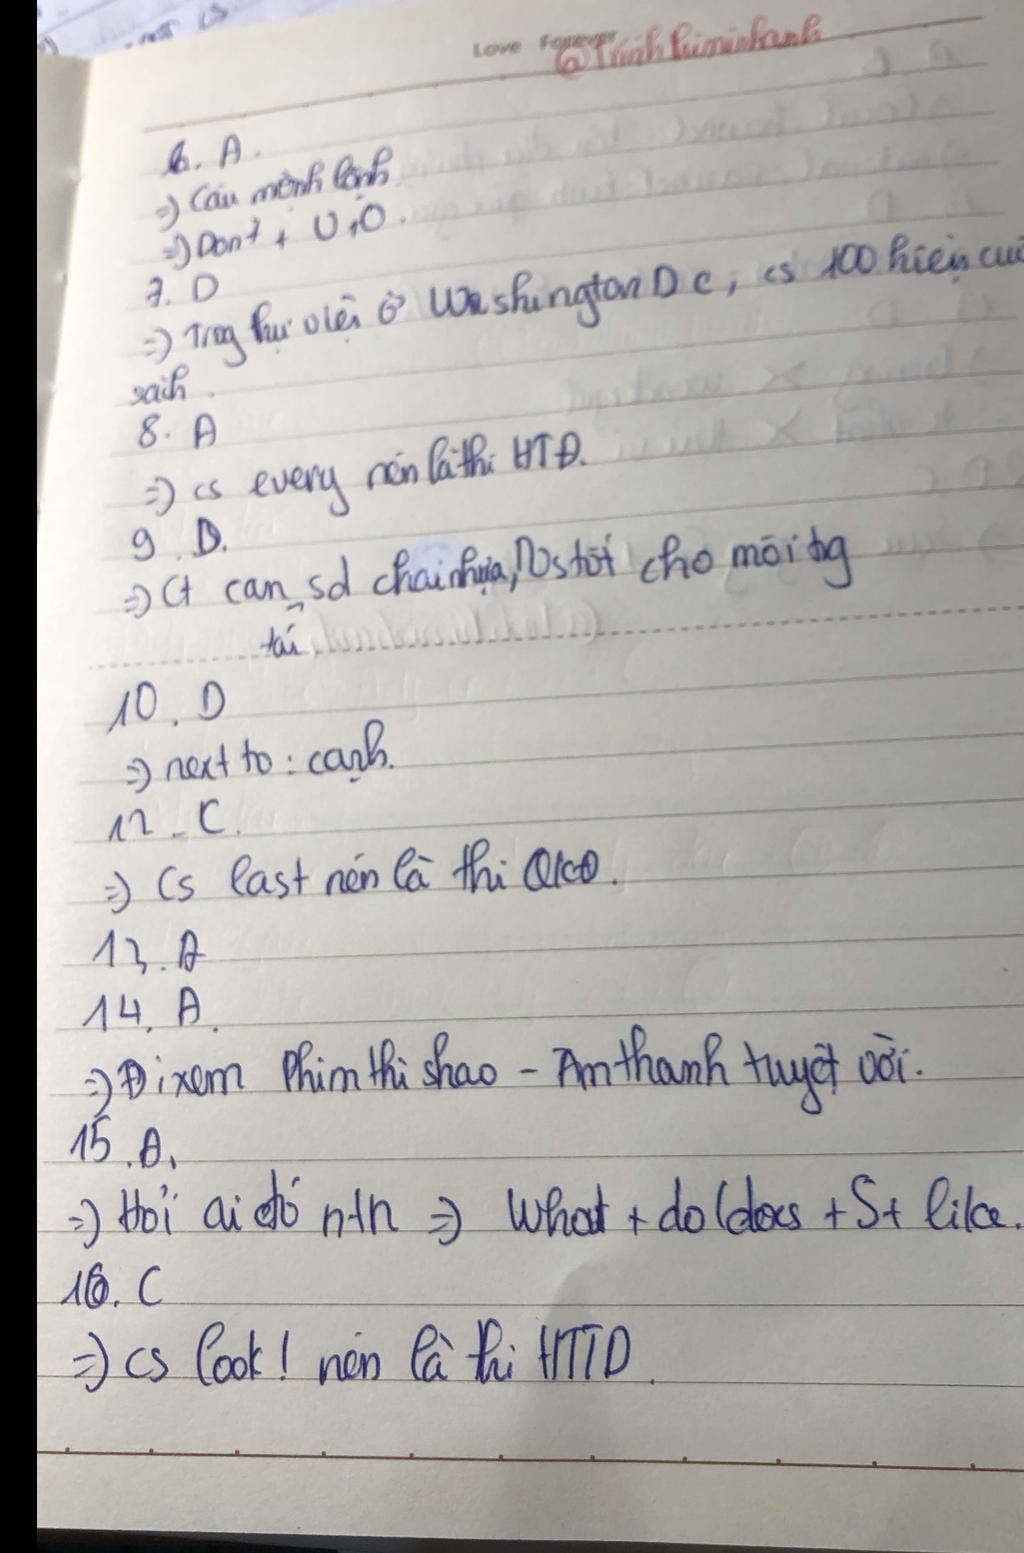 Love Forever
@Trinhkiminhanh
6. A.
=) Câu mệnh lệnh
=) Don't + V, O.
7. D
=) Trong thư viện ở Washington DC, cs 100 cuố
sách.
8. A
=) cs every nên là thì HTĐ.
9. D.
=) Ct can sd chai nhựa, tốt cho môi tg
tái
10. D
=) next to : cạnh.
12. C.
=) Cs last nên là thì QKĐ.
13. A
14. A.
=) Đi xem phim thì shao - Âm thanh tuyệt vời.
15. A.
=) Hỏi ai đó ntn =) What + do/does + S + like.
16. C
=) cs look! nên là thì HTTD.